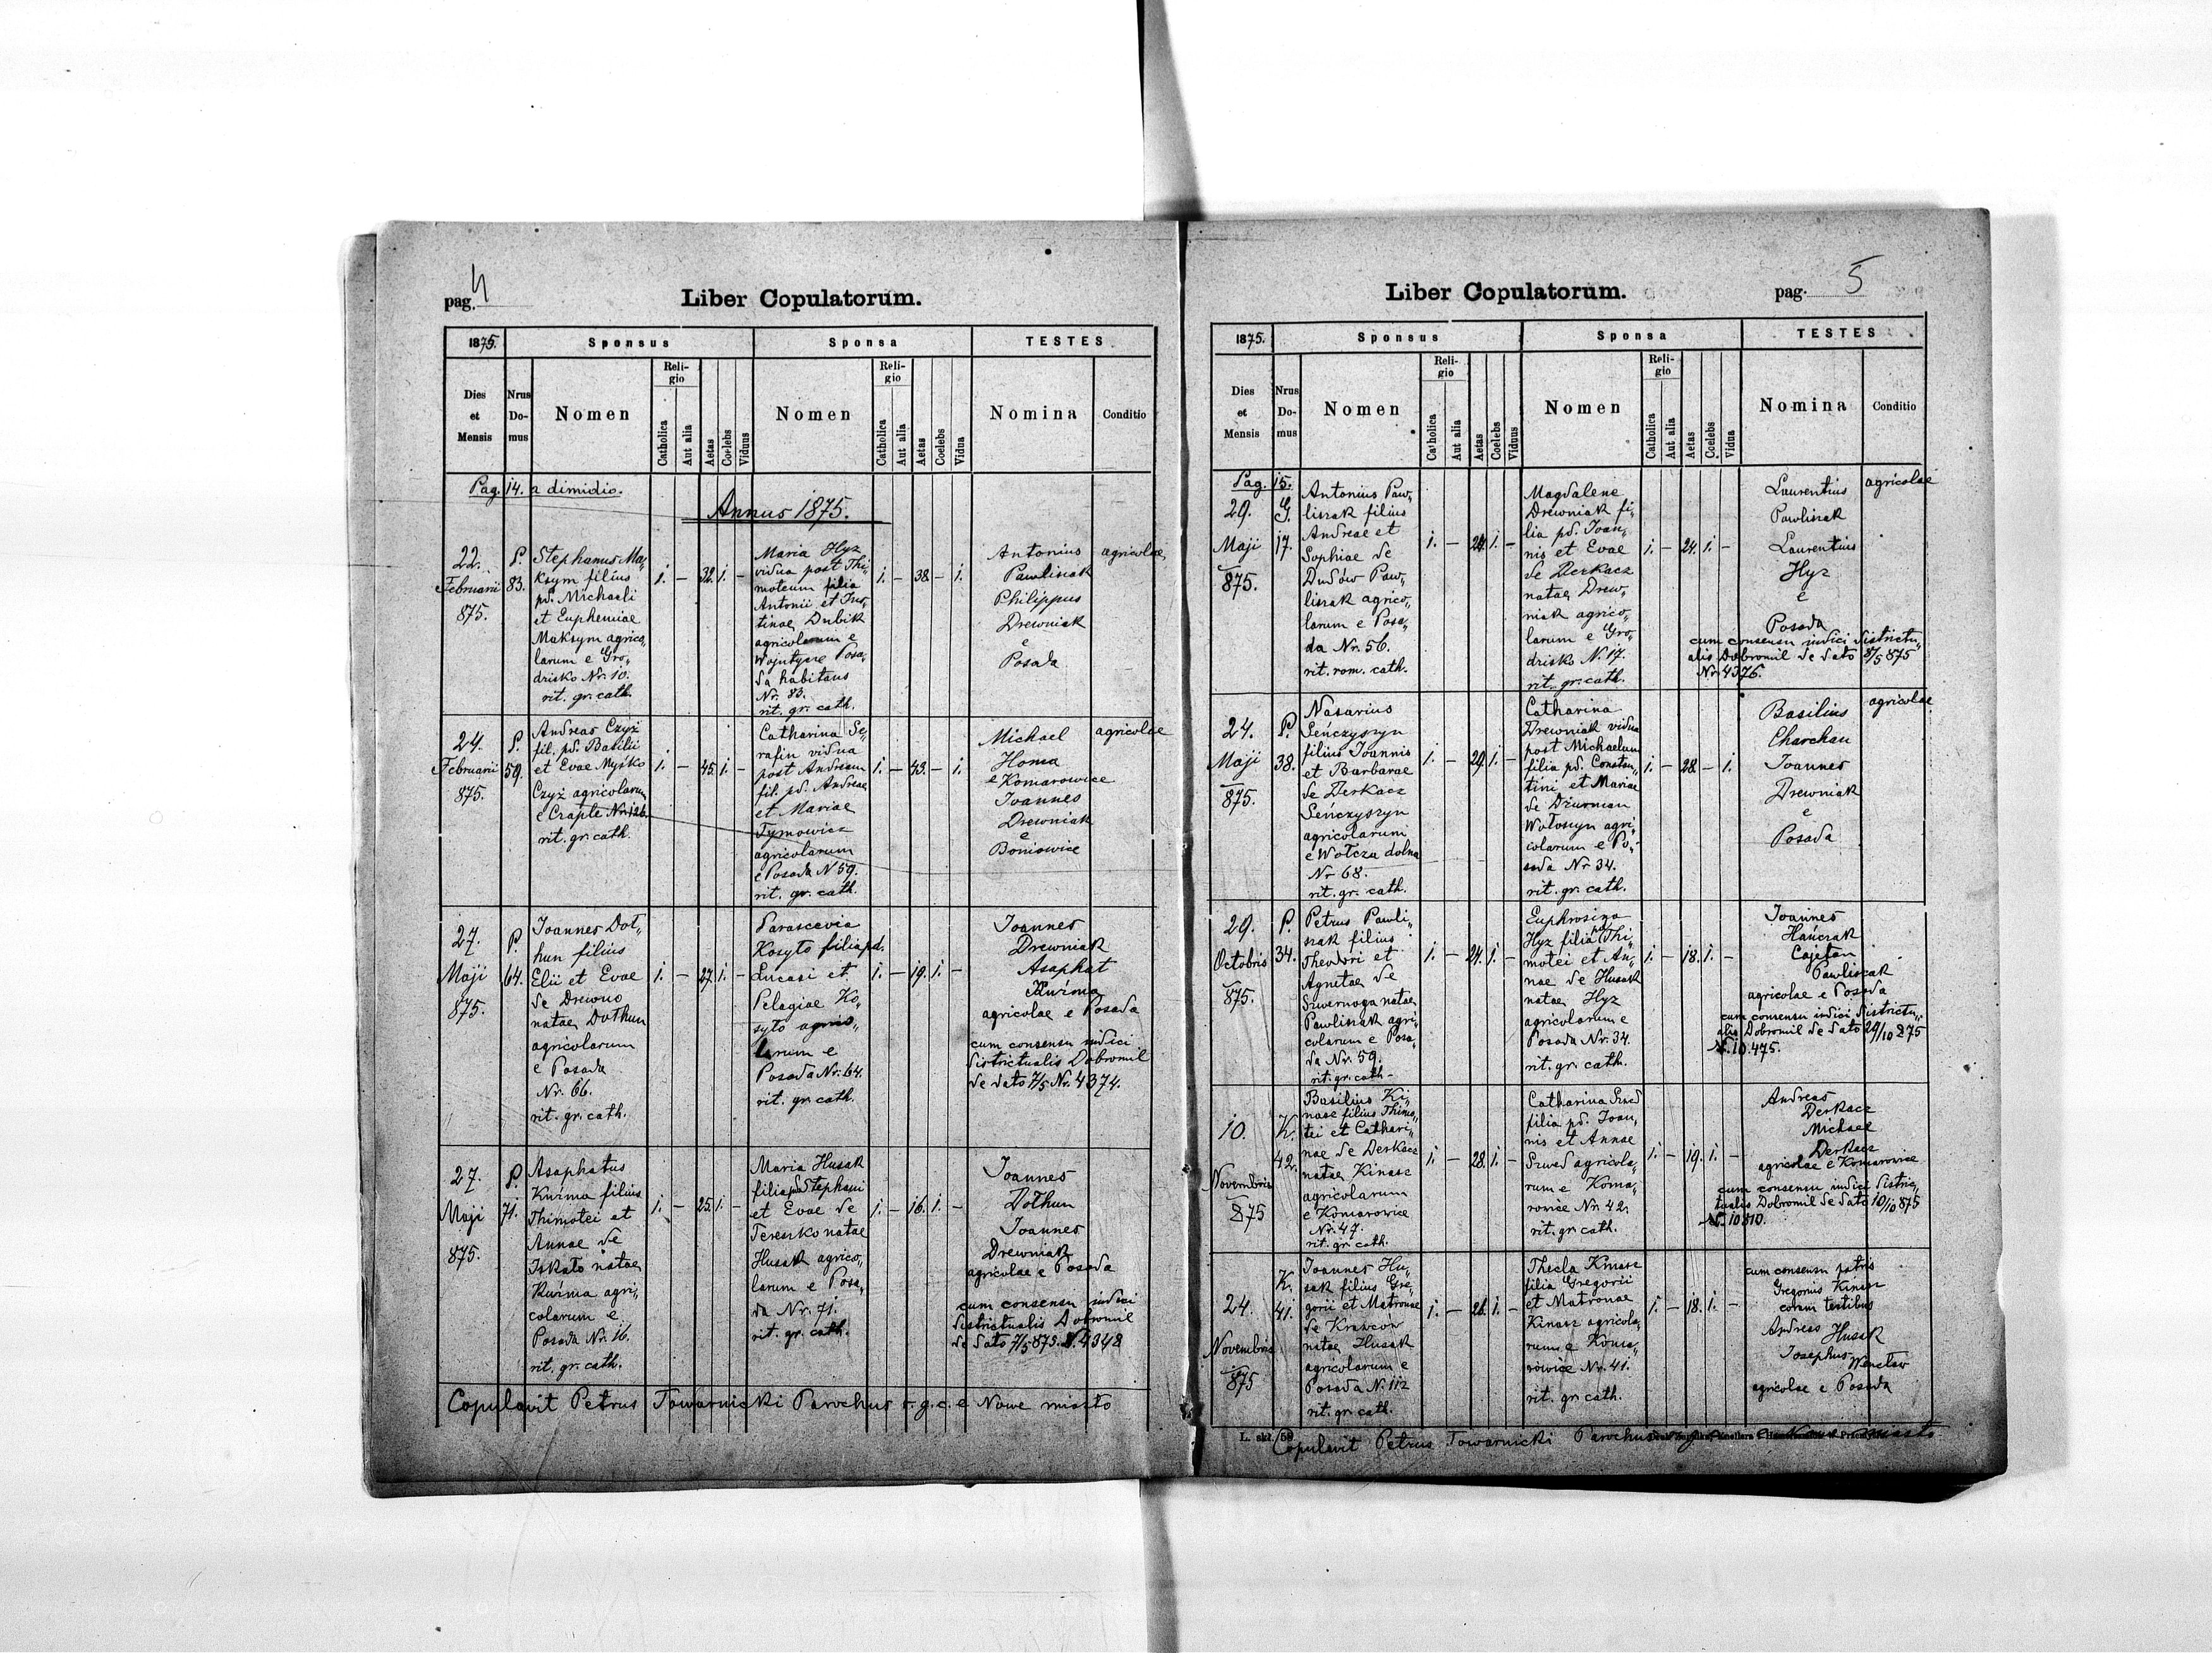 pag. 4
Liber Copulatorum.
1875.
Sponsus
Sponsa
TESTES
Dies et Mensis
Nrus Domus
Nomen
Religio
Catholica
Aut alia
Aetas
Coelebs
Viduus
Nomen
Religio
Catholica
Aut alia
Aetas
Coelebs
Vidua
Nomina
Conditio
Pag. 14. a dimidio.
Annus 1875.
22.
Februarii
875.
P.
83.
Stephanus Ma„
ksym filius
pd. Michaeli
et Euphemiae
Maksym agrico„
larum e Gro„
dzisko Nr. 10.
rit. gr. cath.
1. — 32. 1. —
Maria Hyz
vidua post Thi„
moteum filia
Antonii et Jus„
tinae Dubik
agricolarum e
Wojutycze Posa„
da habitans
Nr. 83.
rit. gr. cath.
1. — 38 — 1.
Antonius
Pawliszak
Philippus
Drewniak
e
Posada
agricolae
24.
Februarii
875.
P.
59.
Andreas Czyż
fil. pd. Basilii
et Evae Myśko
Czyż agricolarum
e Czaple Nr. 126.
rit. gr. cath.
1. — 45. 1. —
Catharina Se„
rafin vidua
post Andream
fil. pd. Andreae
et Mariae
Tymowicz
agricolarum
e Posada N 59.
rit. gr. cath.
1. — 43. — 1.
Michael
Homa
e Komarowice
Joannes
Drewniak
e
Boniowice
agricolae
27.
Maji
875.
P.
64.
Joannes Doł„
hun filius
Elii et Evae
de Drewno
natae Dołhun
agricolarum
e Posada
Nr. 66.
rit. gr. cath.
1. — 27. 1. —
Parascevia
Kosyto filia pd.
Lucasi et
Pelagiae Ko„
syto agrico„
larum e
Posada Nr. 64.
rit. gr. cath.
1. — 19. 1. —
Joannes
Drewniak
Asaphat
Kuźma
agricolae e Posada
cum consensu iudici
districtualis Dobromil
de dato 7/5 Nr. 4374.
27.
Maji
875.
P.
71.
Asaphatus
Kuźma filius
Thimotei et
Annae de
Iskało natae
Kuźma agri„
colarum e
Posada Nr. 16.
rit. gr. cath.
1. — 25. 1. —
Maria Husak
filia pd. Stephani
et Evae de
Tereszko natae
Husak agrico„
larum e Posa„
da Nr. 71.
rit. gr. cath.
1. — 16. 1. —
Joannes
Dołhun
Joannes
Drewniak
agricolae e Posada
cum consensu iudici
districtualis Dobromil
de dato 7/5 875. N. 4348
Copulavit Petrus Towarnicki Parochus r. g. c. e Nowe miasto
pag. 5
Liber Copulatorum.
1875.
Sponsus
Sponsa
TESTES
Dies et Mensis
Nrus Domus
Nomen
Religio
Catholica
Aut alia
Aetas
Coelebs
Viduus
Nomen
Religio
Catholica
Aut alia
Aetas
Coelebs
Vidua
Nomina
Conditio
Pag. 15.
29.
Maji
875.
G.
17.
Antonius Paw„
liszak filius
Andreae et
Sophiae de
Dudów Paw„
liszak agrico„
larum e Posa„
da Nr. 56.
rit. rom. cath.
1. — 24. 1. —
Magdalene
Drewniak fi„
lia pd. Joan„
nis et Evae
de Derkacz
natae Drew„
niak agrico„
larum e Gro„
dzisko N. 17.
rit. gr. cath.
1. — 24. 1. —
Laurentius
Pawliszak
Laurentius
Hyz
e
Posada
agricolae
cum consensu iudici districtu„
alis Dobromil de dato 8/5 875
Nr. 4376.
24.
Maji
875.
P.
38.
Nasarius
Seńczyszyn
filius Joannis
et Barbarae
de Derkacz
Seńczyszyn
agricolarum
e Wołcza dolna
Nr 68.
rit. gr. cath.
1. — 29. 1. —
Catharina
Drewniak vidua
post Michaelum
filia pd. Constan„
tini et Mariae
de Dzurman
Wołoszyn agri„
colarum e Po„
sada Nr 34.
rit. gr. cath.
1. — 28. — 1.
Basilius
Charchan
Joannes
Drewniak
e
Posada
agricolae
29.
Octobris
875.
P.
34.
Petrus Pawli„
szak filius
Theodori et
Agnetae de
Szwernoga natae
Pawliszak agri„
colarum e Posa„
da Nr. 59.
rit. gr. cath.
1. — 24. 1. —
Euphrosina
Hyz filia pd. Thi„
motei et An„
nae de Husak
natae Hyz
agricolarum e
Posada Nr. 34.
rit. gr. cath.
1. — 18. 1. —
Joannes
Hańczak
Cajetan
Pawliszak
agricolae e Posada
cum consensu iudici districtu„
alis Dobromil de dato 29/10 875
N. 10.475.
10.
Novembris
875
K.
42.
Basilius Ki„
nasz filius Thimo„
tei et Cathari„
nae de Derkacz
natae Kinasz
agricolarum
e Komarowice
Nr. 47.
rit. gr. cath.
1. — 28. 1. —
Catharina Szwed
filia pd. Joan„
nis et Annae
Szwed agricola„
rum e Koma„
rowice Nr. 42.
rit. gr. cath.
1. — 19. 1. —
Andreas
Derkacz
Michael
Derkacz
agricolae e Komarowice
cum consensu iudici distric„
tualis Dobromil de dato 10/10 875
N. 10810.
24.
Novembris
875
K.
41.
Joannes Hu„
sak filius Gre„
gorii et Matronae
de Krawców
natae Husak
agricolarum e
Posada N. 112
rit. gr. cath.
1. — 26. 1. —
Thecla Kinasz
filia Gregorii
et Matronae
Kinasz agricola„
rum e Koma„
rowice Nr. 41.
rit. gr. cath.
1. — 18. 1. —
cum consensu patris
Gregorius Kinasz
coram testibus
Andreas Husak
Josephus Wencław
agricolae e Posada
L. skł. 59
Copulavit Petrus Towarnicki Parochus e Nowe miasto